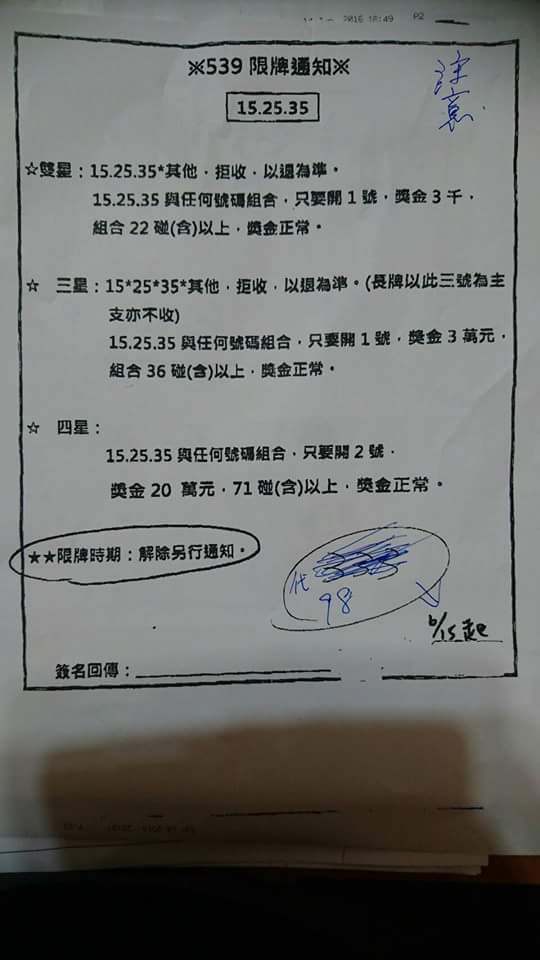 2016 18:49 P2
※539 限牌通知※
注意
15.25.35
☆雙星：15.25.35*其他，拒收，以退為準。
15.25.35 與任何號碼組合，只要開 1 號，獎金 3 千，
組合 22 碰(含)以上，獎金正常。
☆ 三星：15*25*35*其他，拒收，以退為準。(長牌以此三號為主
支亦不收)
15.25.35 與任何號碼組合，只要開 1 號，獎金 3 萬元，
組合 36 碰(含)以上，獎金正常。
☆ 四星：
15.25.35 與任何號碼組合，只要開 2 號，
獎金 20 萬元，71 碰(含)以上，獎金正常。
★★限牌時期：解除另行通知。
代
98
6/15 起
簽名回傳：